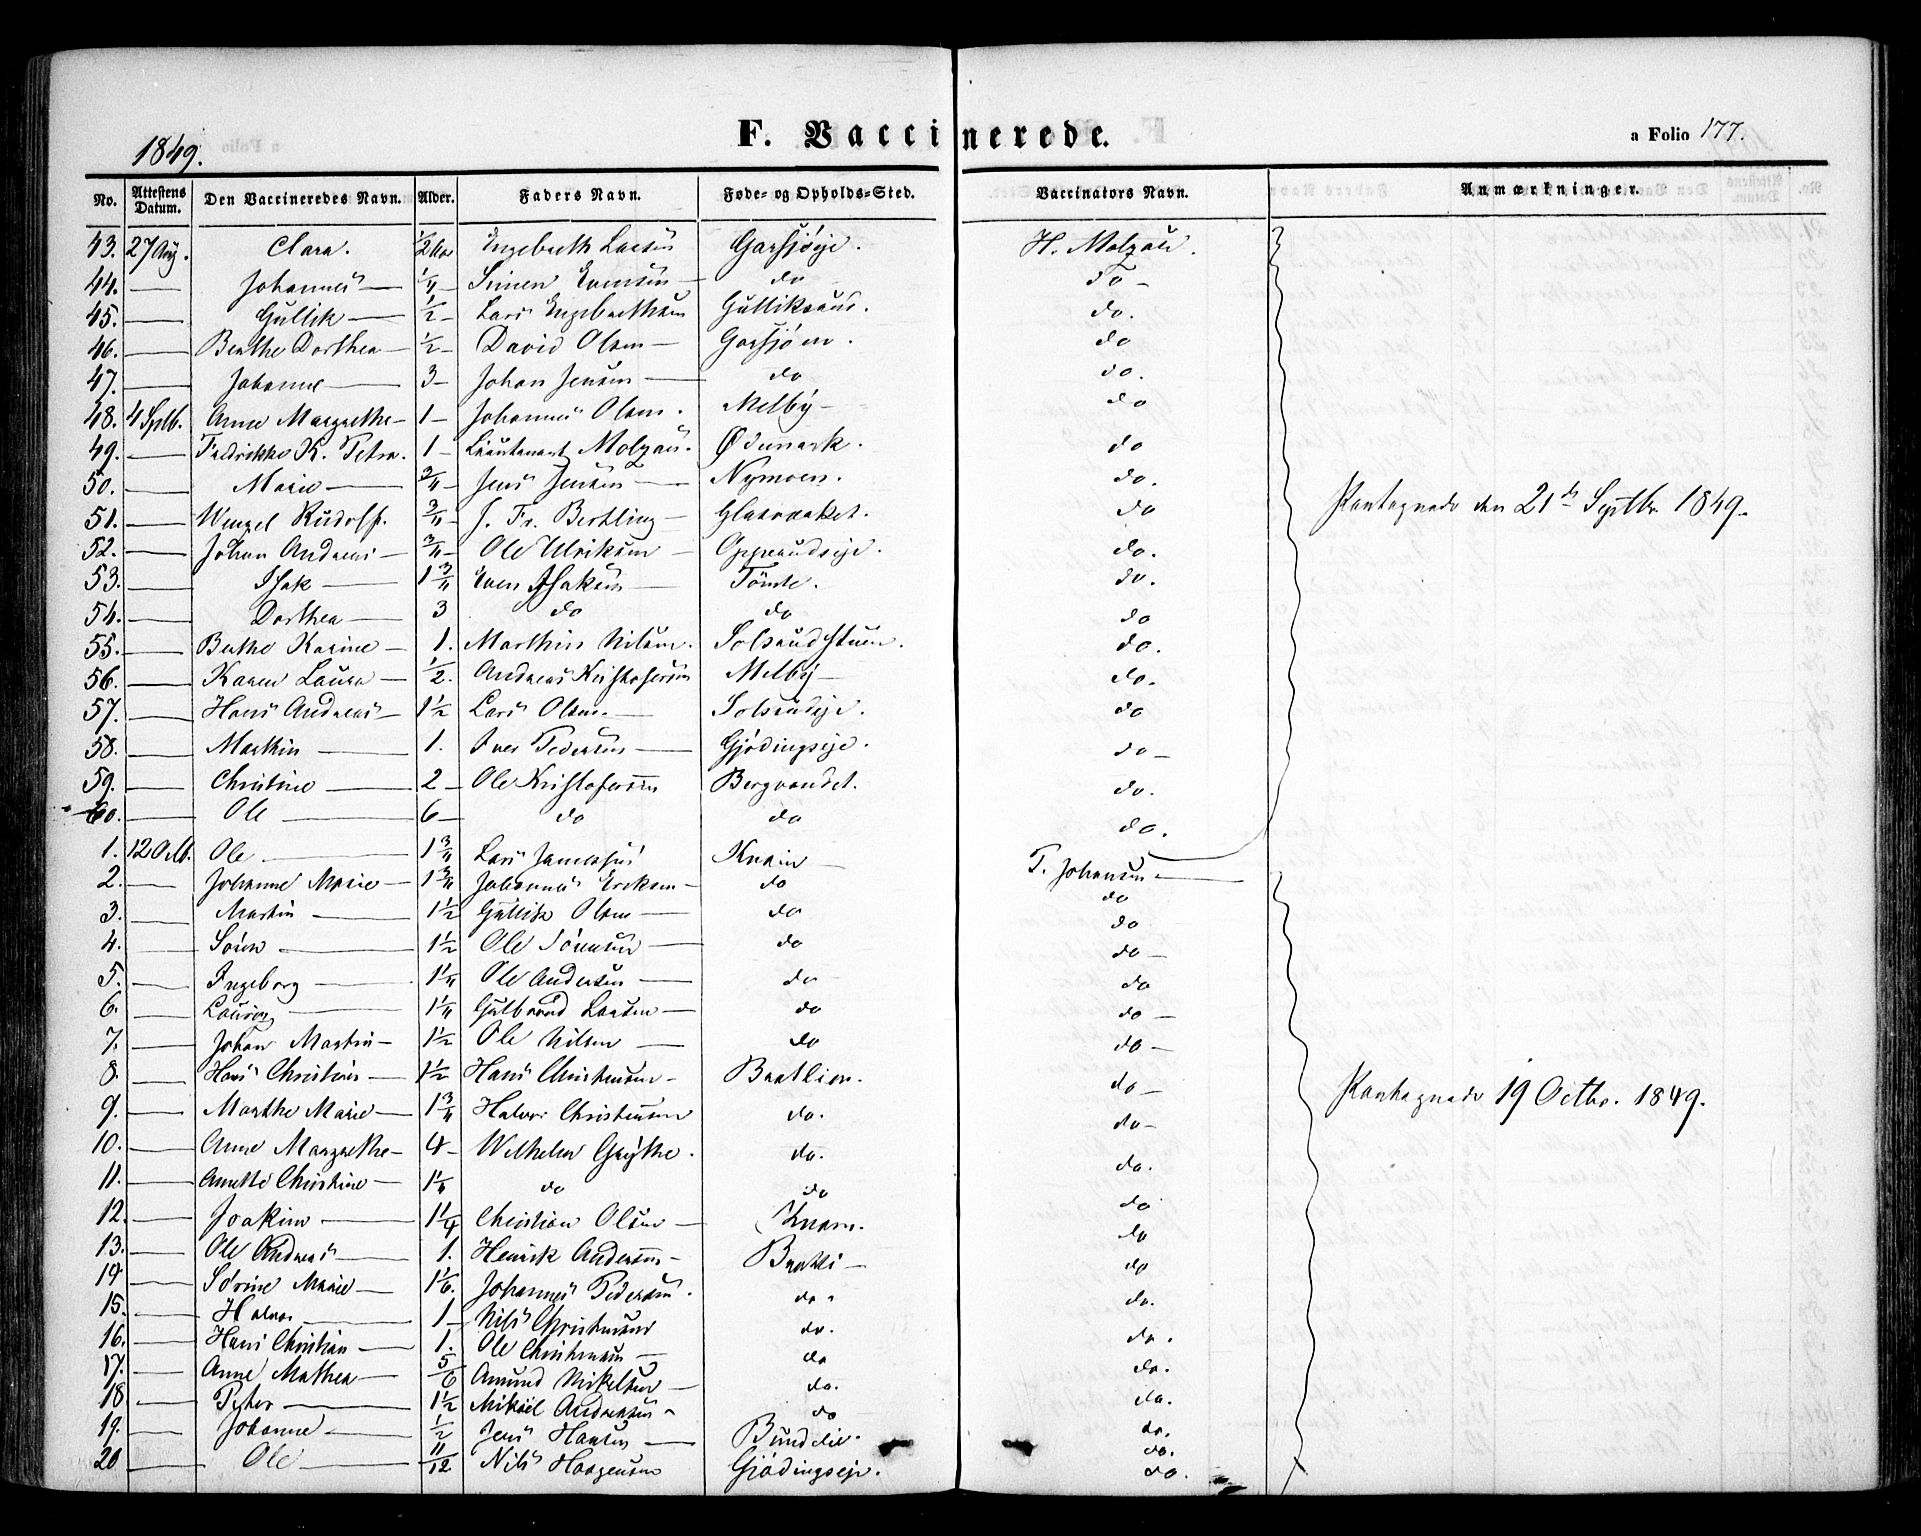 1849.
F. Vaccinerede.
a Folio 177.
No. Attestens Datum. Den Vaccineredes Navn. Alder. Faders Navn. Føde- og Opholds-Sted. Vaccinators Navn. Anmærkninger.
43. 27 Aug. Clara. 1/2 Aar Engebreth Larsen Garsjøeje. H. Molzau.
44. Johannes 1/4 Simen Evensen do do
45. Gullik 1/2 Lars Engebrethsen Gulliksrud. do.
46. Berthe Dorthea 1/2 David Olsen Garsjøen. do
47. Johanne 3 Johan Jensen do do.
48. 4 Septb. Anne Margrethe 1 Johannes Olsen. Melby do
49. Fredrikke K. Petra. 1 Lieutenant Molzau. Ødemark. do
50. Marie 3/4 Jens Jensen Nymoen. do.
51. Wenzel Rudolf. 3/4 J. Fr. Bertling Glasværket. do
Rentegnede den 21de Septbr. 1849.
52. Johan Andreas 3/4 Ole Ulriksen Opsrudeje. do.
53. Isak 1 3/4 Even Isaksen Tømte. do.
54. Dorthea 3 do do do
55. Berthe Karine 1. Marthin Nilsen. Solsrudstuen. do.
56. Karen Laura 1/2. Andreas Kristofersen Melby do.
57. Hans Andreas 1 1/2 Lars Olsen. Solsrudeje. do
58. Marthin 1. Iver Pedersen Gjødingseje. do
59. Christine 2 Ole Kristofersen Bergvandet. do.
60. Ole 6 do do do.
1. 12 Octb. Ole 1 3/4 Lars Knain T. Johansen
2. Johanne Marie 1 3/4 Johannes Eriksen do do
3. Martin 1 1/2 Gullik Olsen do do
4. Sören 1 1/2 Ole Sörensen do do
5. Ingeborg 1 1/4 Ole Andersen do do
6. Lauritz 1 1/4 Gulbrand Larsen do do
7. Johan Martin 1 1/2 Ole Nilsen do do
8. Hans Christian 1 1/2 Hans Christensen Baatlien. do
9. Marthe Marie 1 3/4 Halvor Christensen do. do
Rentegnede 19 Octbr. 1849.
10. Anne Margrethe 4 Wilhelm Grythe. do. do.
11. Anette Christine 1 1/4 do do do
12. Joakim 1 1/4 Christian Olsen Knain. do
13. Ole Andreas 1. Henrik Andersen Baatli do
14 Sörine Marie 1 1/6. Johannes Pedersen. do. do.
15. Halvor 1 Nils Christensen do. do.
16. Hans Christian 1. Ole Christensen do do.
17. Anne Mathea 5/6 Amund Mikelsen do. do.
18 Peter 1 1/2 Mikael Andersen do do.
19. Johanne 1/2 Jens Hansen Bundlie. do.
20 Ole 11/12 Nils Haagensen Gjødingseje. do.